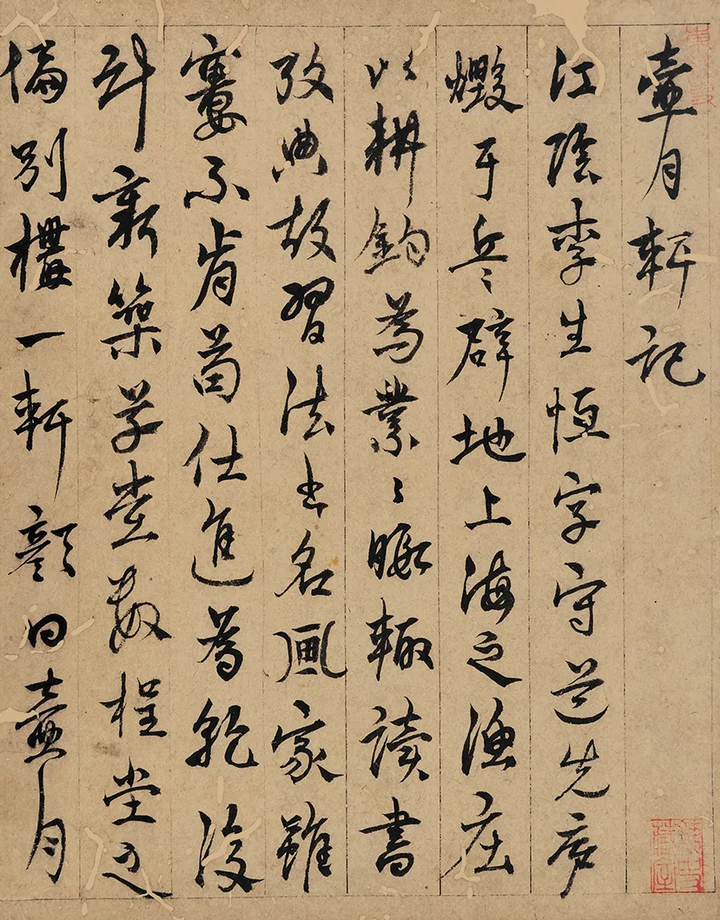 壷月軒記
江陰李生恒字守道先廬
燬于兵辟地上海之漁庄
以耕釣為業〻暇輙讀書
攷典故習法書名画家雖
窶不肯苟仕進為乾没
計新築草堂数楹堂之
偏別構一軒顔曰壷月